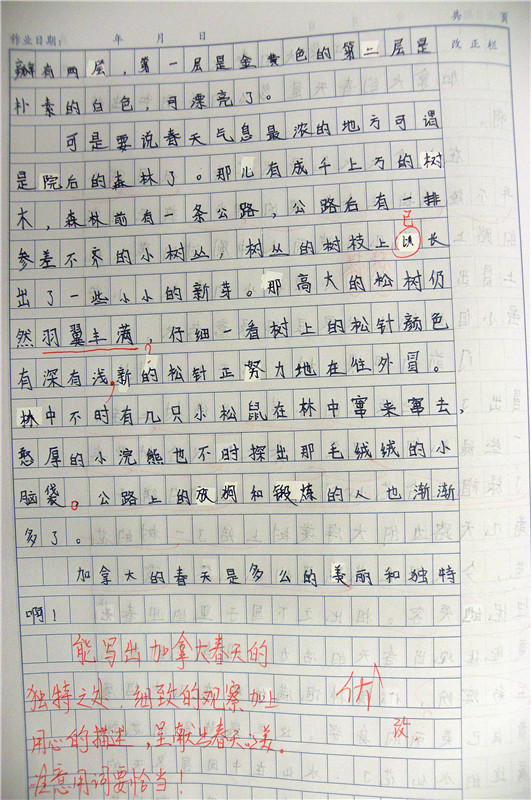 共 页
作业日期： 年 月 日 改正栏
瓣有两层，第一层是金黄色的第二层是
朴素的白色，可漂亮了。
可是要说春天气息最浓的地方可谓
是院后的森林了。那儿有成千上万的树
木，森林前有一条公路，公路后有一排
已
参差不齐的小树丛，树丛的树枝上以长
出了一些小小的新芽。那高大的松树仍
然羽翼丰满，仔细一看树上的松针颜色
？
有深有浅，新的松针正努力地在往外冒。
林中不时有几只小松鼠在林中窜来窜去，
憨厚的小浣熊也不时探出那毛绒绒的小
脑袋。公路上的放狗和锻炼的人也渐渐
多了。
加拿大的春天是多么的美丽和独特
啊！
能写出加拿大春天的
独特之处，细致的观察加上
用心的描述，呈献出春天之美。
注意用词要恰当！
优